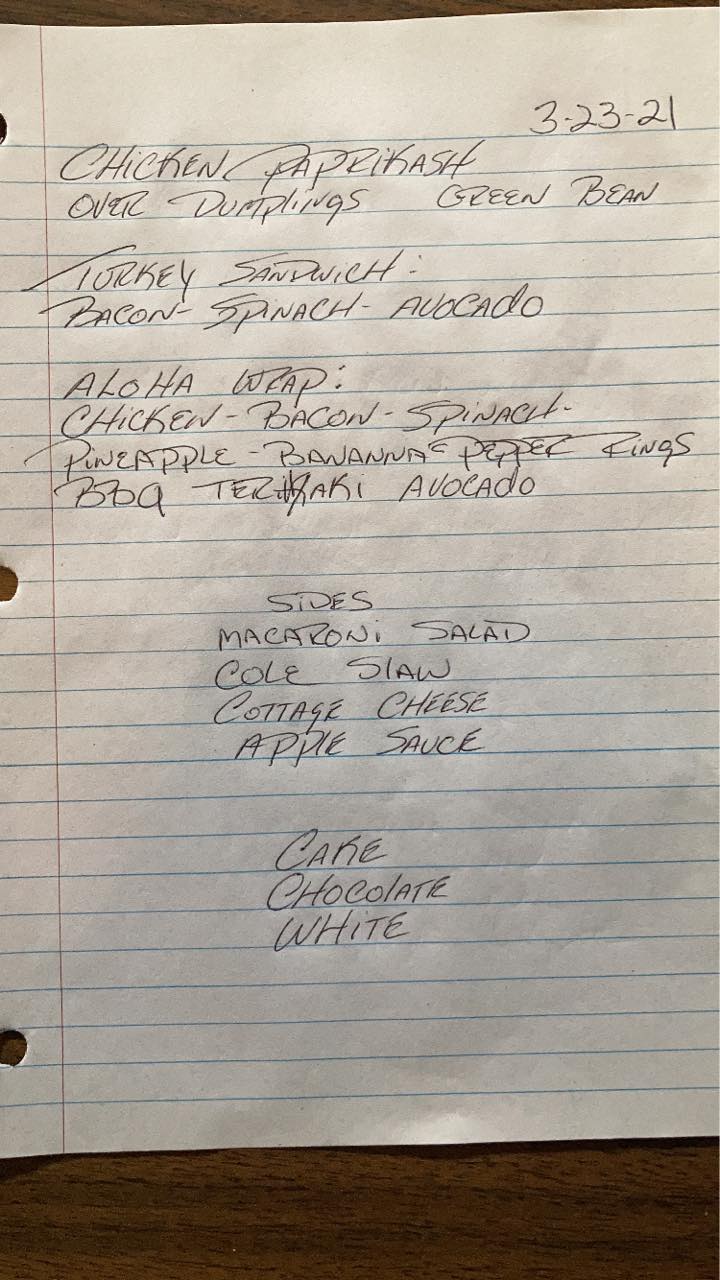 3-23-21
CHICKEN PAPRIKASH
OVER DUMPLINGS GREEN BEAN
TURKEY SANDWICH:
BACON- SPINACH- AVOCADO
ALOHA WRAP:
CHICKEN- BACON- SPINACH-
PINEAPPLE- BANANNA PEPPER RINGS
BBQ TERIYAKI AVOCADO
SIDES
MACARONI SALAD
COLE SLAW
COTTAGE CHEESE
APPLE SAUCE
CAKE
CHOCOLATE
WHITE